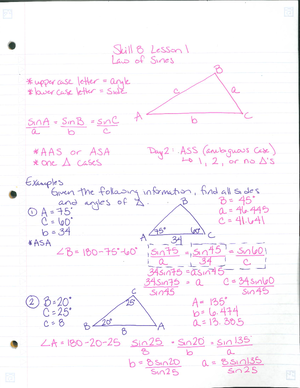 Skill 8 Lesson 1
Law of Sines
* uppercase letter = angle
* lowercase letter = side
B
c
a
A
b
C
sinA/a = sinB/b = sinC/c
* AAS or ASA
* one △ cases
Day 2: ASS (ambiguous case)
↳ 1, 2, or no △'s
Examples
Given the following information, find all sides
and angles of △.
① A = 75°
C = 60°
b = 34
* ASA
B
A 45° 60° C
34
B = 45°
a = 46.445
c = 41.641
∠B = 180-75-60°
sin75/a = sin45/34 = sin60/c
34sin75 = asin45
34sin75/sin45 = a
c = 34sin60/sin45
② B = 20°
C = 25°
c = 8
C
25°
20°
B
8
A
A = 135°
b = 6.474
a = 13.385
∠A = 180-20-25
sin25/8 = sin20/b = sin135/a
b = 8sin20/sin25
a = 8sin135/sin25